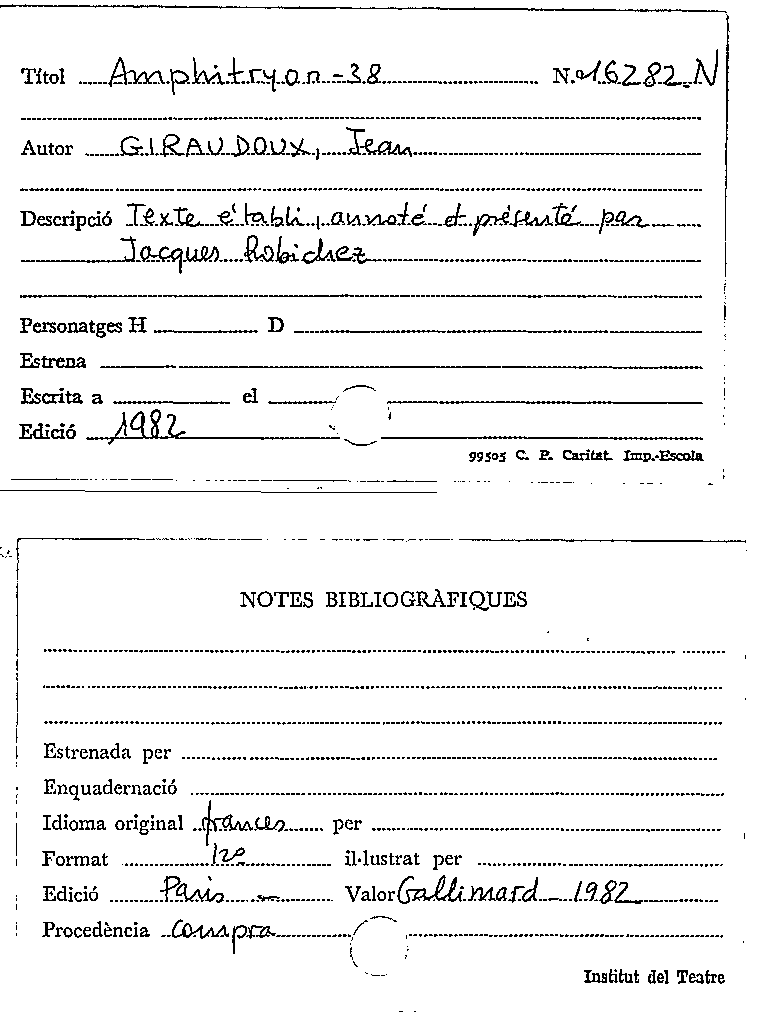 Títol Amphitryon-38 N.º 16282-N
Autor GIRAUDOUX, Jean
Descripció Texte établi, annoté et présenté par
Jacques Robichez
Personatges H D
Estrena
Escrita a el
Edició 1982
99505 C. P. Caritat. Imp.-Escola
NOTES BIBLIOGRÀFIQUES
Estrenada per
Enquadernació
Idioma original frances per
Format 12º il·lustrat per
Edició Paris - Valor Gallimard - 1982
Procedència compra
Institut del Teatre